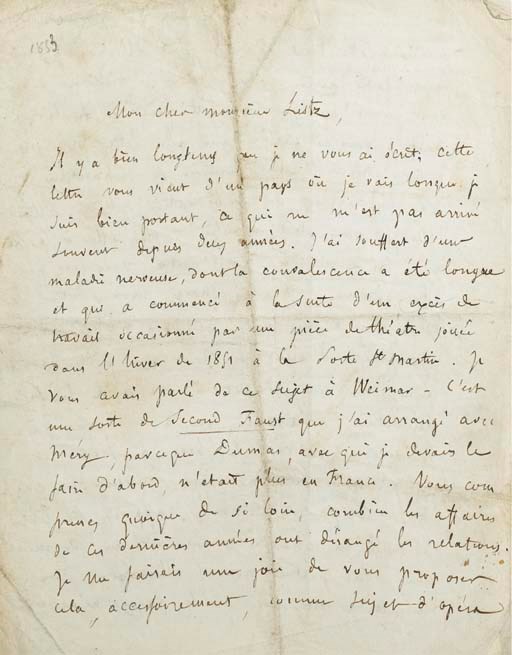 1853
Mon cher monsieur Listz,
Il y a bien longtems que je ne vous ai écrit; cette
lettre vous vient d'un pays où je vais lorsque je
suis bien portant, ce qui ne m'est pas arrivé
souvent depuis deux années. J'ai souffert d'une
maladie nerveuse, dont la convalescence a été longue
et qui a commencé à la suite d'un excès de
travail occasionné par une pièce de théâtre jouée
dans l'hiver de 1851 à la Porte St Martin. Je
vous avais parlé de ce sujet à Weimar - C'est
une sorte de Second Faust que j'ai arrangé avec
Méry, parceque Dumas, avec qui je devais le
faire d'abord, n'était plus en France. Vous com
prenez quoique de si loin, combien les affaires
de ces dernières années ont dérangé les relations.
Je me faisais une joie de vous proposer
cela, accessoirement, comme sujet d'opéra